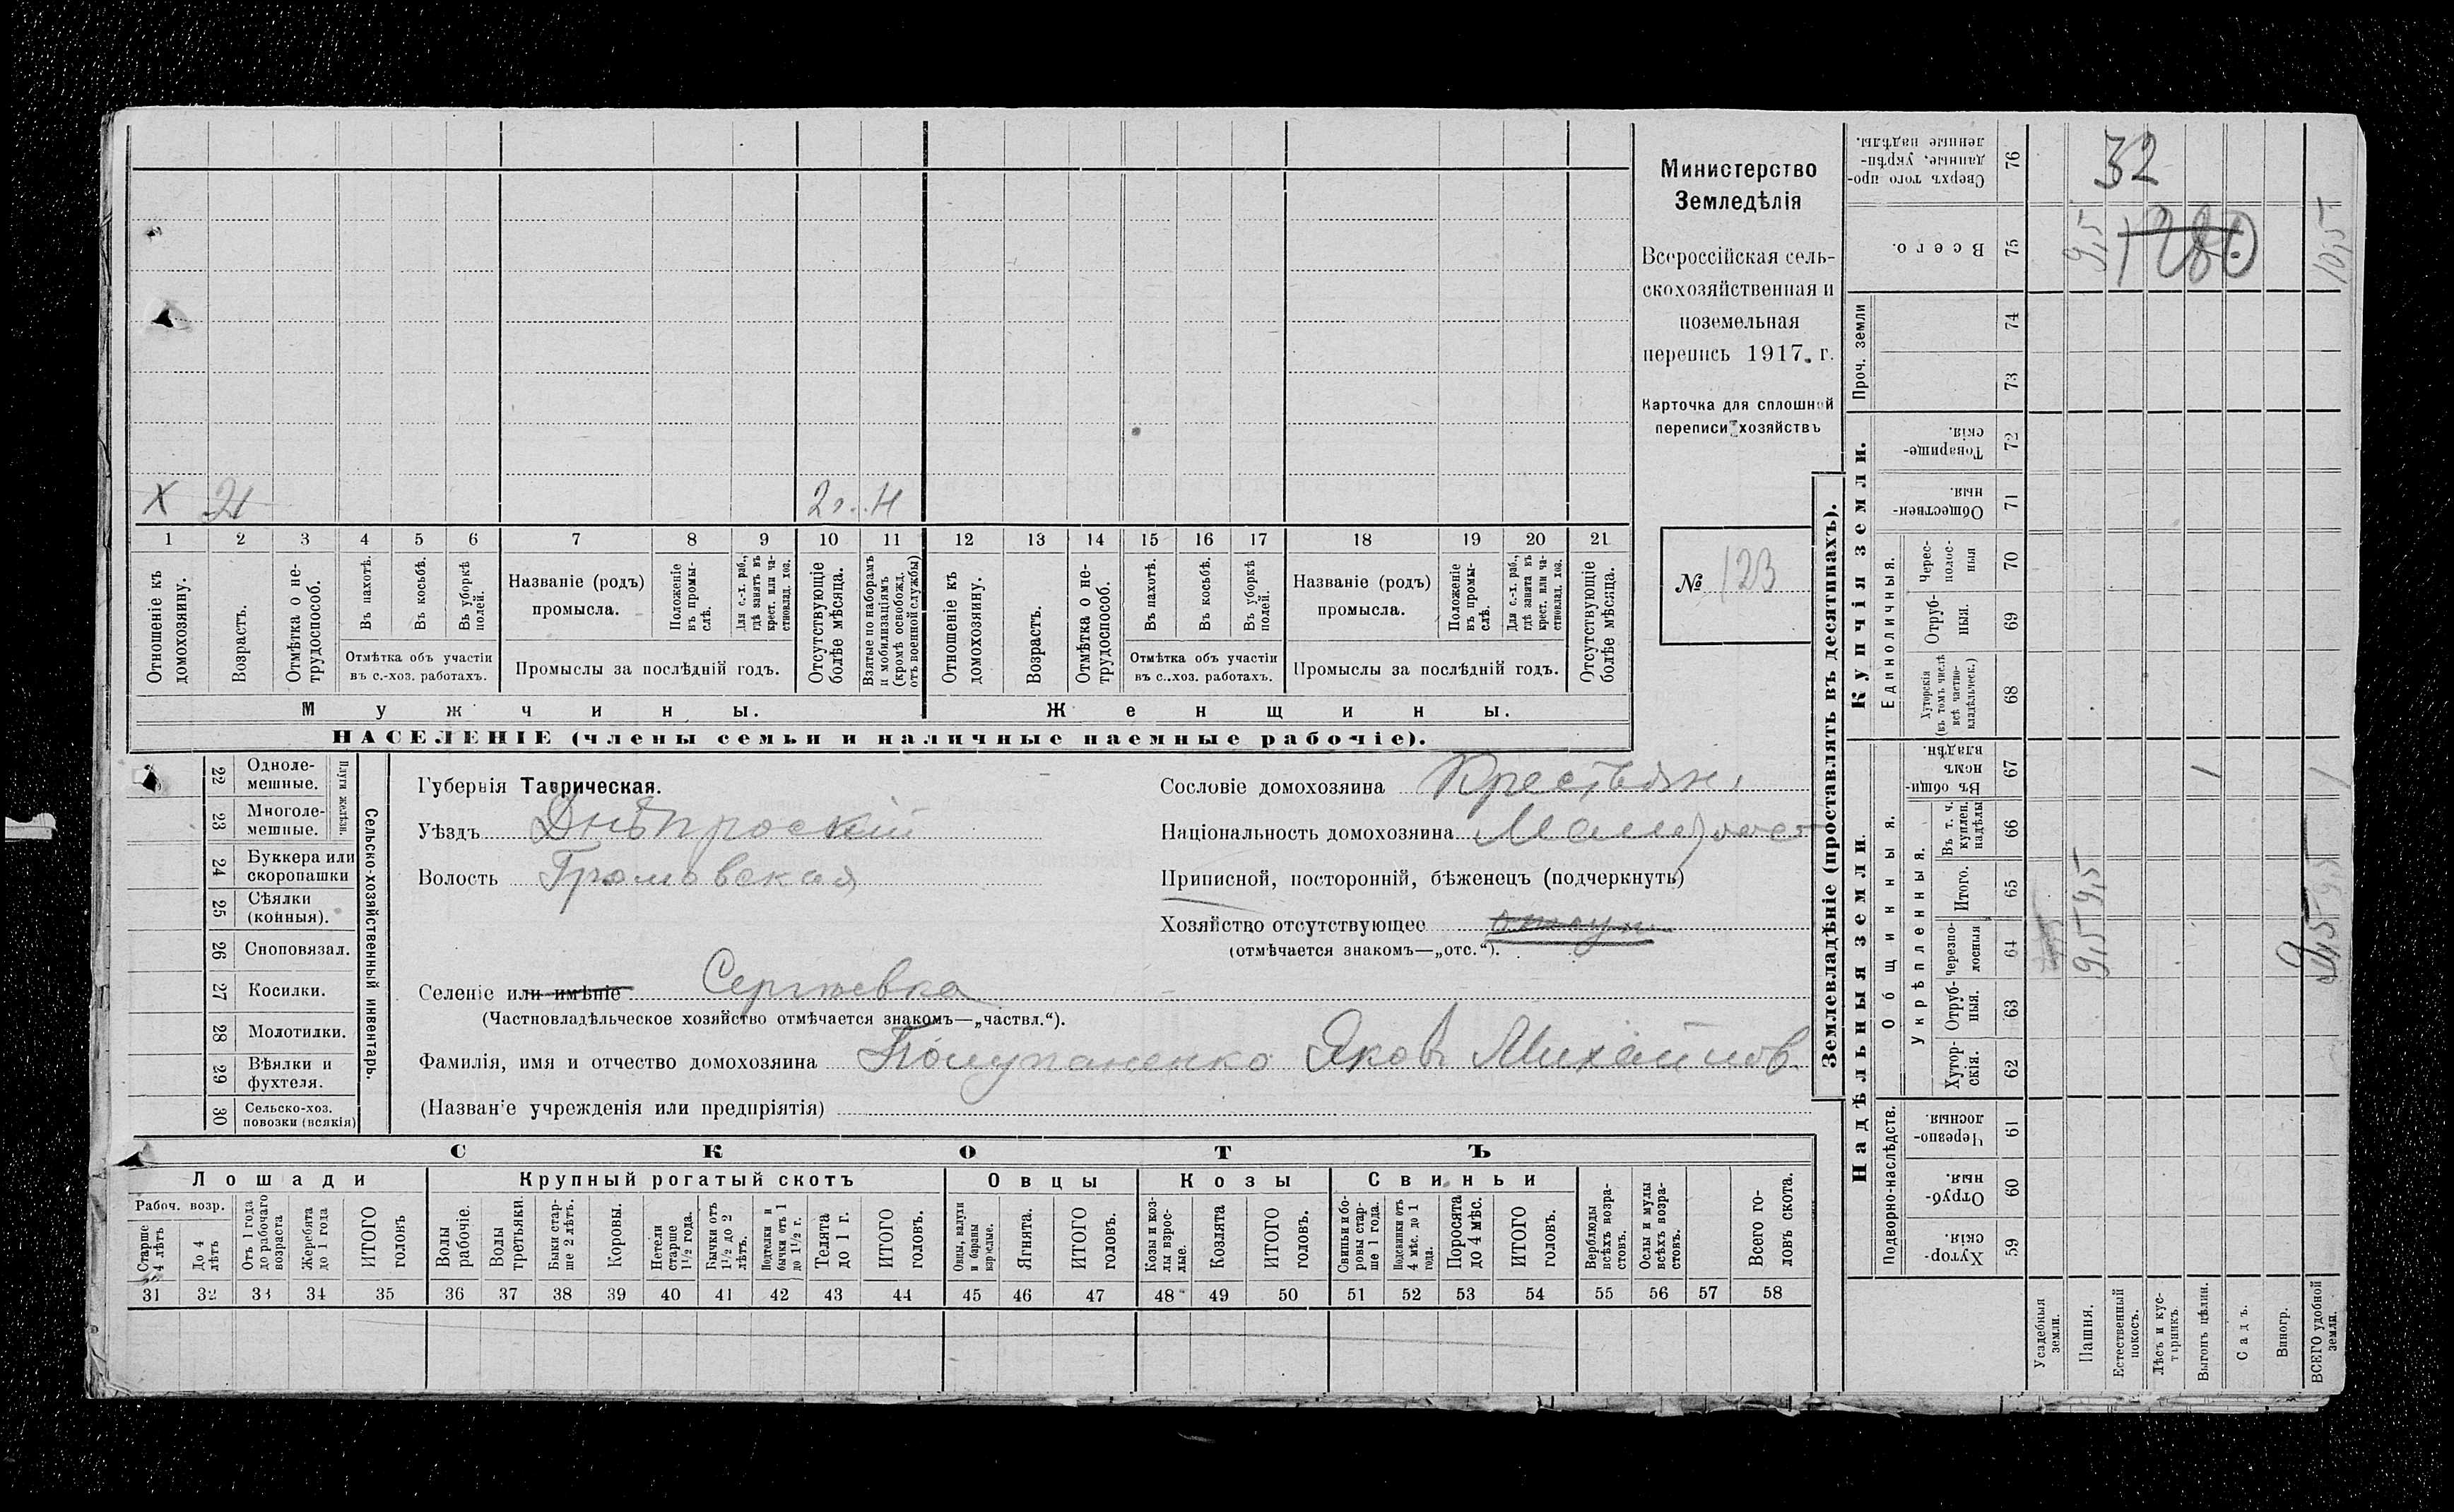 Министерство
Земледѣлія
Всероссійская сель-
скохозяйственная и
поземельная
перепись 1917. г.
Карточка для сплошной
переписи хозяйствъ
№ 123
X 21 2 г. Н
1 2 3 4 5 6 7 8 9 10 11 12 13 14 15 16 17 18 19 20 21
Отношеніе къ домохозяину.
Возрастъ.
Отмѣтка о не-трудоспособ.
Въ пахотѣ.
Въ косьбѣ.
Въ уборкѣ полей.
Отмѣтка объ участіи
въ с.-хоз. работахъ.
Названіе (родъ)
промысла.
Положеніе въ промы-слѣ.
Для с.-х. раб., гдѣ занятъ въ крест. или ча-стновлад. хоз.
Промыслы за послѣдній годъ.
Отсутствующіе болѣе мѣсяца.
Взятые по наборамъ и мобилизаціямъ (кромѣ освобожд. отъ военной службы)
Отношеніе къ домохозяину.
Возрастъ.
Отмѣтка о не-трудоспособ.
Въ пахотѣ.
Въ косьбѣ.
Въ уборкѣ полей.
Отмѣтка объ участіи
въ с..хоз. работахъ.
Названіе (родъ)
промысла.
Положеніе въ промы-слѣ.
Для с.-х. раб., гдѣ занята въ крест. или ча-стновлад. хоз.
Промыслы за послѣдній годъ.
Отсутствующіе болѣе мѣсяца.
Мужчины.
Женщины.
НАСЕЛЕНІЕ (члены семьи и наличные наемные рабочіе).
22 Одноле-мешные.
23 Многоле-мешные.
Плуги желѣзн.
24 Буккера или скоропашки
25 Сѣялки (конныя).
26 Сноповязал.
27 Косилки.
28 Молотилки.
29 Вѣялки и фухтеля.
30 Сельско-хоз. повозки (всякія)
Сельско-хозяйственный инвентарь.
Губернія Таврическая.
Уѣздъ Днѣпроскій
Волость Громовская
Сословіе домохозяина Крестьян.
Національность домохозяина
Приписной, посторонній, бѣженецъ (подчеркнуть)
Хозяйство отсутствующее
(отмѣчается знакомъ—„отс.“).
Селеніе или имѣніе Сергѣевка
(Частновладѣльческое хозяйство отмѣчается знакомъ—„частвл.“).
Фамилія, имя и отчество домохозяина Полупаненко Яковъ Михайлов.
(Названіе учрежденія или предпріятія)
СКОТЪ
Лошади
Крупный рогатый скотъ
Овцы
Козы
Свиньи
Рабоч. возр.
Старше 4 лѣтъ
До 4 лѣтъ
Отъ 1 года до рабочаго возраста
Жеребята до 1 года
ИТОГО головъ
Волы рабочіе.
Волы третьяки.
Быки стар-ше 2 лѣтъ.
Коровы.
Нетели старше 1½ года.
Бычки отъ 1½ до 2 лѣтъ.
Подтелки и бычки отъ 1 до 1½ г.
Телята до 1 г.
ИТОГО головъ.
Овцы, валухи и бараны взрослые.
Ягнята.
ИТОГО головъ.
Козы и коз-лы взрос-лые.
Козлята
ИТОГО головъ.
Свиньи и бо-ровы стар-ше 1 года.
Подсвинки отъ 4 мѣс. до 1 года.
Поросята до 4 мѣс.
ИТОГО головъ.
Верблюды всѣхъ возра-стовъ.
Ослы и мулы всѣхъ возра-стовъ.
Всего го-ловъ скота.
31 32 33 34 35 36 37 38 39 40 41 42 43 44 45 46 47 48 49 50 51 52 53 54 55 56 57 58
Землевладѣніе (проставлять въ десятинахъ).
Надѣльныя земли.
Купчія земли.
Проч. земли
Подворно-наслѣдств.
Общинныя.
Укрѣпленныя.
Единоличныя.
Хутор-скія. 59
Отруб-ныя. 60
Черезпо-лосныя. 61
Хутор-скія. 62
Отруб-ныя. 63
Черезпо-лосныя 64
Итого. 65
Въ т. ч. куплен. надѣлы 66
Въ общин-номъ владѣн. 67
Хуторскія (въ томъ числѣ всѣ частно-владѣльческ.) 68
Отруб-ныя. 69
Черес-полос-ныя 70
Обществен-ныя 71
Товарище-скія. 72
73
74
Всего. 75
Сверхъ того про-данные, укрѣп-ленные надѣлы. 76
Усадебныя земли.
Пашня. 9,5 9,5 9,5
Естественный покосъ.
Лѣсъ и кус-тарникъ.
Выгонъ цѣлин. 1
Садъ.
Виногр.
ВСЕГО удобной земли. 9,5 9,5 1 10,5
32
128